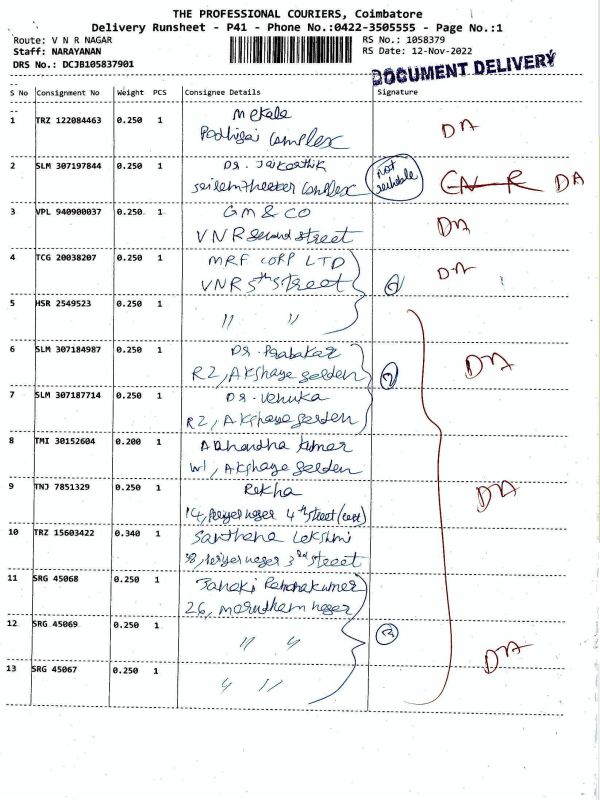 THE PROFESSIONAL COURIERS, Coimbatore
Delivery Runsheet - P41 - Phone No.:0422-3505555 - Page No.:1
Route: V N R NAGAR
RS No.: 1058379
Staff: NARAYANAN
RS Date: 12-Nov-2022
DRS No.: DCJB105837901
DOCUMENT DELIVERY
S No Consignment No Weight PCS Consignee Details Signature
1 TRZ 122084463 0.250 1 Mekala
Podhigai Complex
DA
2 SLM 307197844 0.250 1 Dr. Jaikarthik
Theater Complex
not
DA
3 VPL 940900037 0.250 1 GM & CO
VNR Second street
DA
4 TCG 20038207 0.250 1 MRF CORP LTD
VNR 5th street
DA
5 HSR 2549523 0.250 1 " "
6 SLM 307184987 0.250 1 Dr. Prabakar
R2, Akshaya Gorden
2
DA
7 SLM 307187714 0.250 1 Dr. Venuka
R2, Akshaya Gorden
8 TMI 30152604 0.200 1 Kumar
W1, Akshaya Gorden
9 TNJ 7851329 0.250 1 Rekha
14, 4th street
DA
10 TRZ 15603422 0.340 1 Santhana Lekshmi
3rd street
11 SRG 45068 0.250 1 Janaki
26, Marutham nager
12 SRG 45069 0.250 1 " "
3
13 SRG 45067 0.250 1 " "
DA